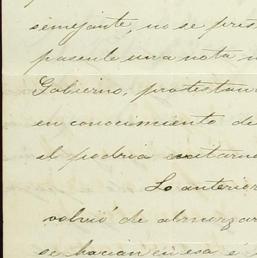 semejante, no se pres
pasente una nota
Gobierno, protestan
en conocimiento de
el podria evitarn
Lo anterior
volvió de almorzar
se hacian en esa é